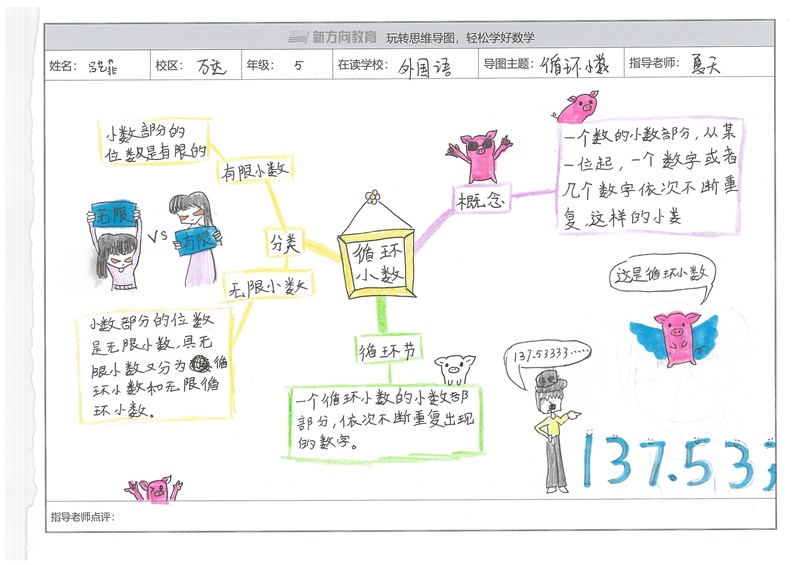 新方向教育 玩转思维导图，轻松学好数学
姓名： 校区：万达 年级：5 在读学校：外国语 导图主题：循环小数 指导老师：夏天
小数部分的
位数是有限的
有限小数
无限
VS
有限
分类
无限小数
小数部分的位数
是无限小数,具无
限小数又分为 循
环小数和无限循
环小数。
循环
小数
概念
一个数的小数部分，从某
一位起，一个数字或者
几个数字依次不断重
复,这样的小类
循环节
一个循环小数的小数部
部分，依次不断重复出现
的数字。
这是循环小数
137.53333······
137.533
指导老师点评：